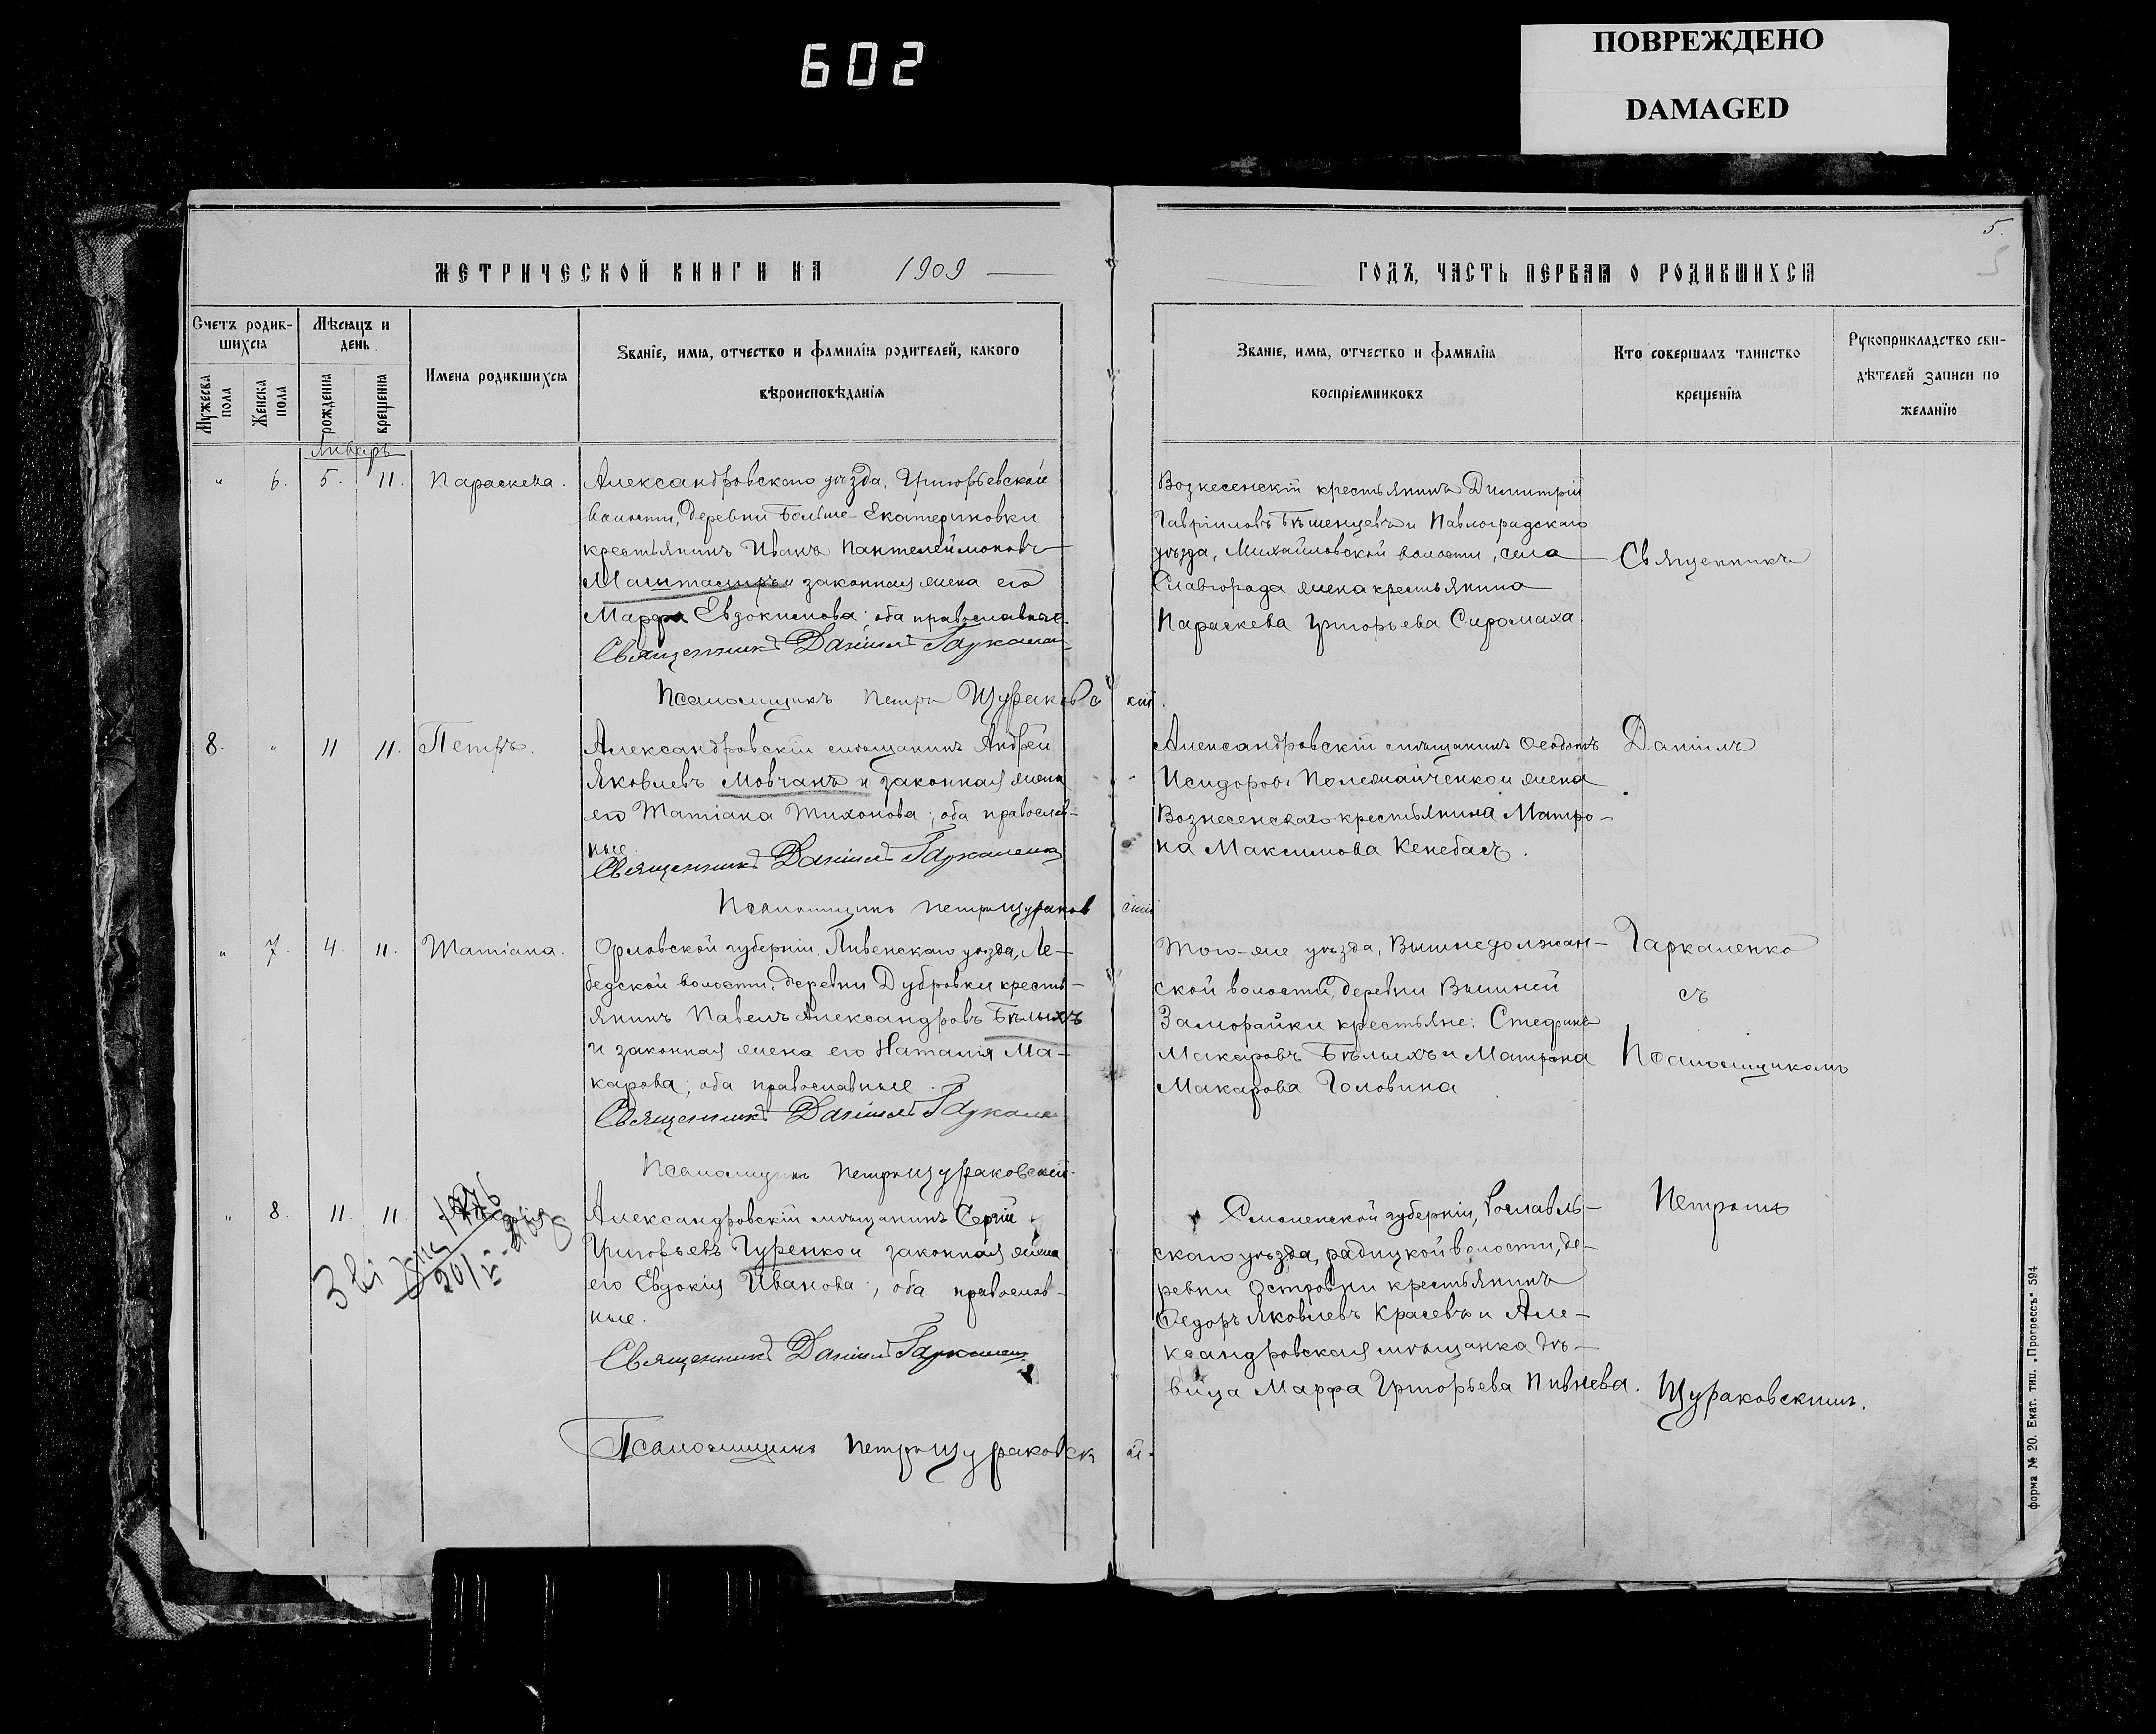 602
ПОВРЕЖДЕНО
DAMAGED
5.
МЕТРИЧЕСКОЙ КНИГИ НА 1909
ГОДЪ, ЧАСТЬ ПЕРВАЯ О РОДИВШИХСЯ
Счетъ родив-
шихся
Мѣсяцъ и
день
Имена родившихся
Званіе, имя, отчество и фамилія родителей, какого
вѣроисповѣданія
Мужеска пола
Женска пола
рожденія
крещенія
Званіе, имя, отчество и фамилія
воспріемниковъ
Кто совершалъ таинство
крещенія
Рукоприкладство сви-
дѣтелей записи по
желанію
Январь
" 6. 5. 11. Параскева.
Александровскаго уѣзда, Григорьевской
волости, деревни Больше-Екатериновки
крестьянинъ Иванъ Пантелеймоновъ
и законная жена его
Марфа Евдокимова; оба православные.
Священникъ Даніилъ Гаркаленко
Псаломщикъ Петръ Щураковскій.
Вознесенскій крестьянинъ Димитрій
Гавріиловъ Бѣшенцевъ и Павлоградскаго
уѣзда, Михайловской волости, села
Славгорода жена крестьянина
Параскева Григорьева Сиромаха.
Священникъ
8. " 11. 11. Петръ.
Александровскій мѣщанинъ Андрей
Яковлевъ Мовчанъ и законная жена
его Татіана Тихонова; оба православ-
ные.
Священникъ Даніилъ Гаркаленко
Псаломщикъ Петръ Щураковскій
Александровскій мѣщанинъ Ѳеодотъ
Исидоровъ и жена
Вознесенскаго крестьянина Матро-
на Максимова Кенебасъ.
Даніилъ
" 7. 4. 11. Татіана.
Орловской губерніи, Ливенскаго уѣзда, Ле-
бедской волости, деревни Дубровки кресть-
янинъ Павелъ Александровъ Бѣлыхъ
и законная жена его Наталія Ма-
карова; оба православные.
Священникъ Даніилъ Гаркале
Псаломщикъ Петръ Щураковскій.
Того-же уѣзда, Вышнедолжан-
ской волости, деревни Вышней
Заморайки крестьяне: Стефанъ
Макаровъ Бѣлыхъ и Матрона
Макарова Головина
Гаркаленко
съ
Псаломщикомъ
" 8. 11. 11.
Александровскій мѣщанинъ Сергій
Григорьевъ Гуренко и законная жена
его Евдокія Иванова; оба православ-
ные.
Священникъ Даніилъ Гаркален
Псаломщикъ Петръ Щураковскій.
Смоленской губерніи, Рославль-
скаго уѣзда, радицкой волости, де-
ревни Островни крестьянинъ
Ѳедоръ Яковлевъ Красевъ и Але-
ксандровская мѣщанка дѣ-
вица Марфа Григорьева Пивнева.
Петромъ
Щураковскимъ.
форма № 20. Екат. тип. „Прогрессъ" 594